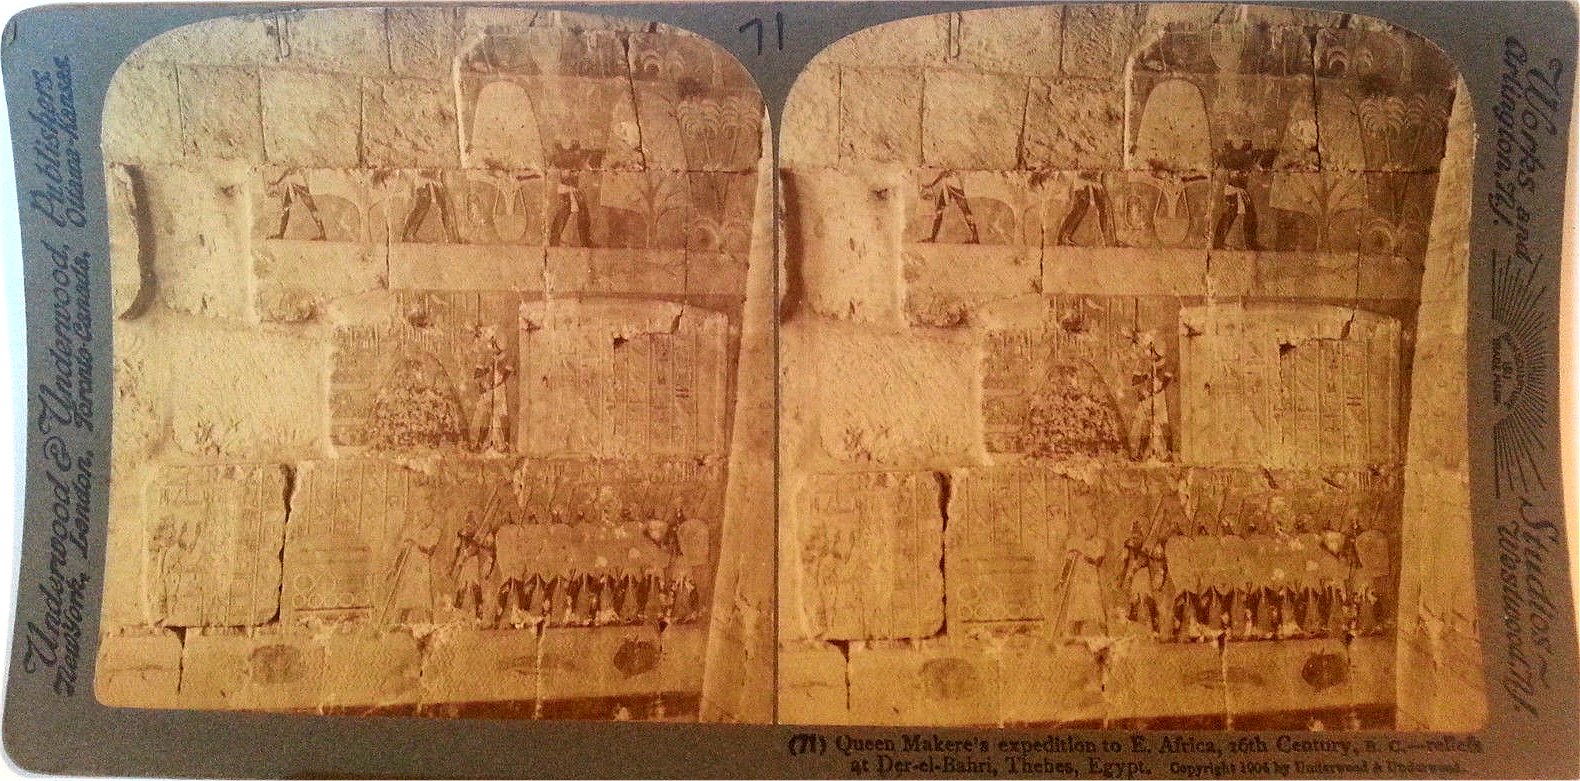 71
Underwood & Underwood, Publishers.
New York, London, Toronto-Canada, Ottawa-Kansas.
Works and Studios ~
Arlington, N.J. Westwood, N.J.
(71) Queen Makere's expedition to E. Africa, 16th Century, B. C.—reliefs
at Der-el-Bahri, Thebes, Egypt. Copyright 1904 by Underwood & Underwood.